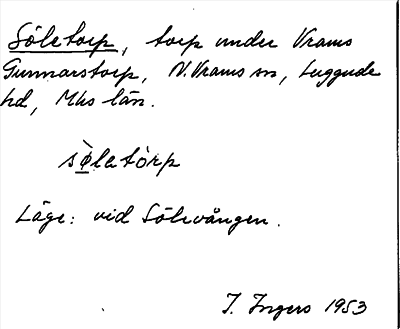 Söletorp, torp under Vrams
Gunnarstorp, N. Vrams sn, Luggude
hd, Mhs län.
sø̀letòrp
Läge: vid Sölevången.
I. Ingers 1953